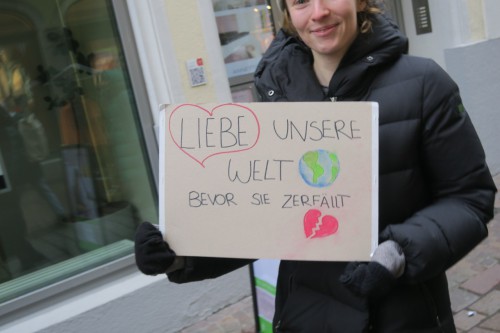 LIEBE UNSERE
WELT
BEVOR SIE ZERFÄLLT